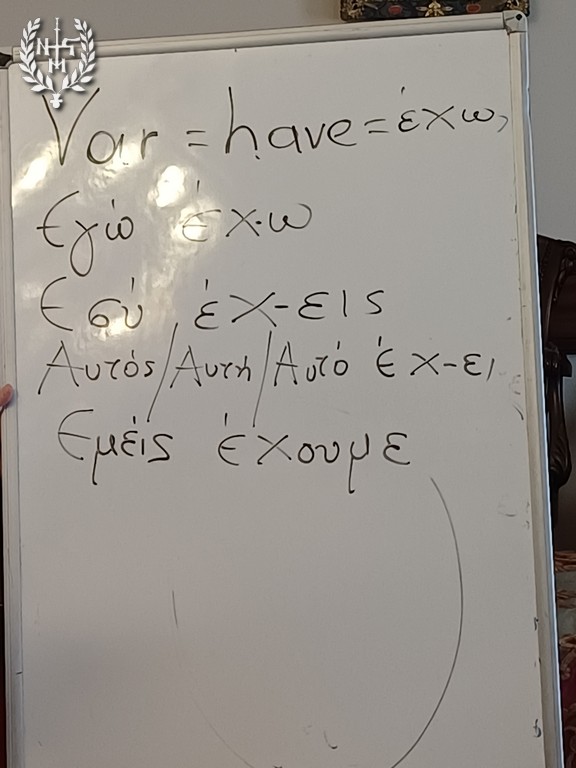 NSM
Var = have = έχω,
Εγώ έχ-ω
Εσύ έχ-εις
Αυτός/Αυτή/Αυτό έχ-ει
Εμείς έχουμε